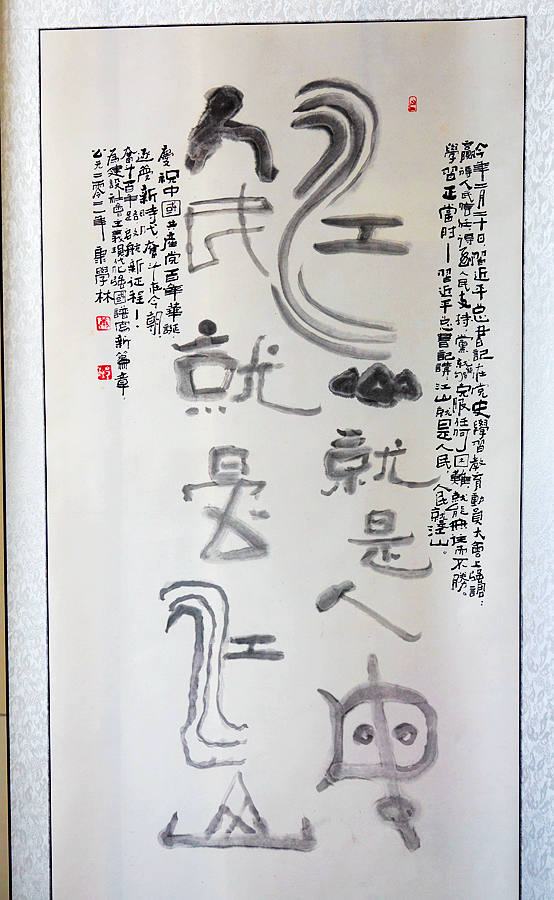 今年二月二十日習近平总書記在党史學習教育動員大會上强調：
贏得人民信任得到人民支持，黨就能克服任何困難，就能無往而不勝。
學習正當时－習近平总書記講江山就是人民，人民就是江山。
江山就是人民
人民就是江山
慶祝中國共產党百年華誕
逐梦新時代奮斗在今朝
奮斗百年路啟航新征程－
為建設社會主義現代化强國譜寫新篇章
公元二零二一年 學林